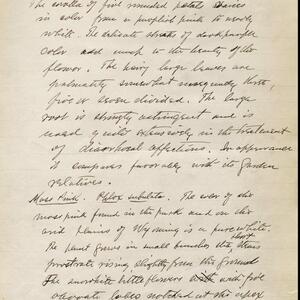 The corolla of five rounded petals varies
in color from a purplish pink to nearly
white. The delicate streaks of deep purple
color add much to the beauty of the
flower. The hairy large leaves are
palmately somewhat irregularly three,
five or seven divided. The large
root is strongly astringent and is
used quite extensively in the treatment
of disorderal affections. In appearance
it compares favorably with its Garden
relatives.
Moss Pink. Phlox subulata. The ever of the
moss pink found in the park and on the
arid plains of Wyoming is a pure white.
The plant grows in small bunches the short stems
prostrate rising slightly from the ground
The little flowers with five
obovate lobes notched at the apex